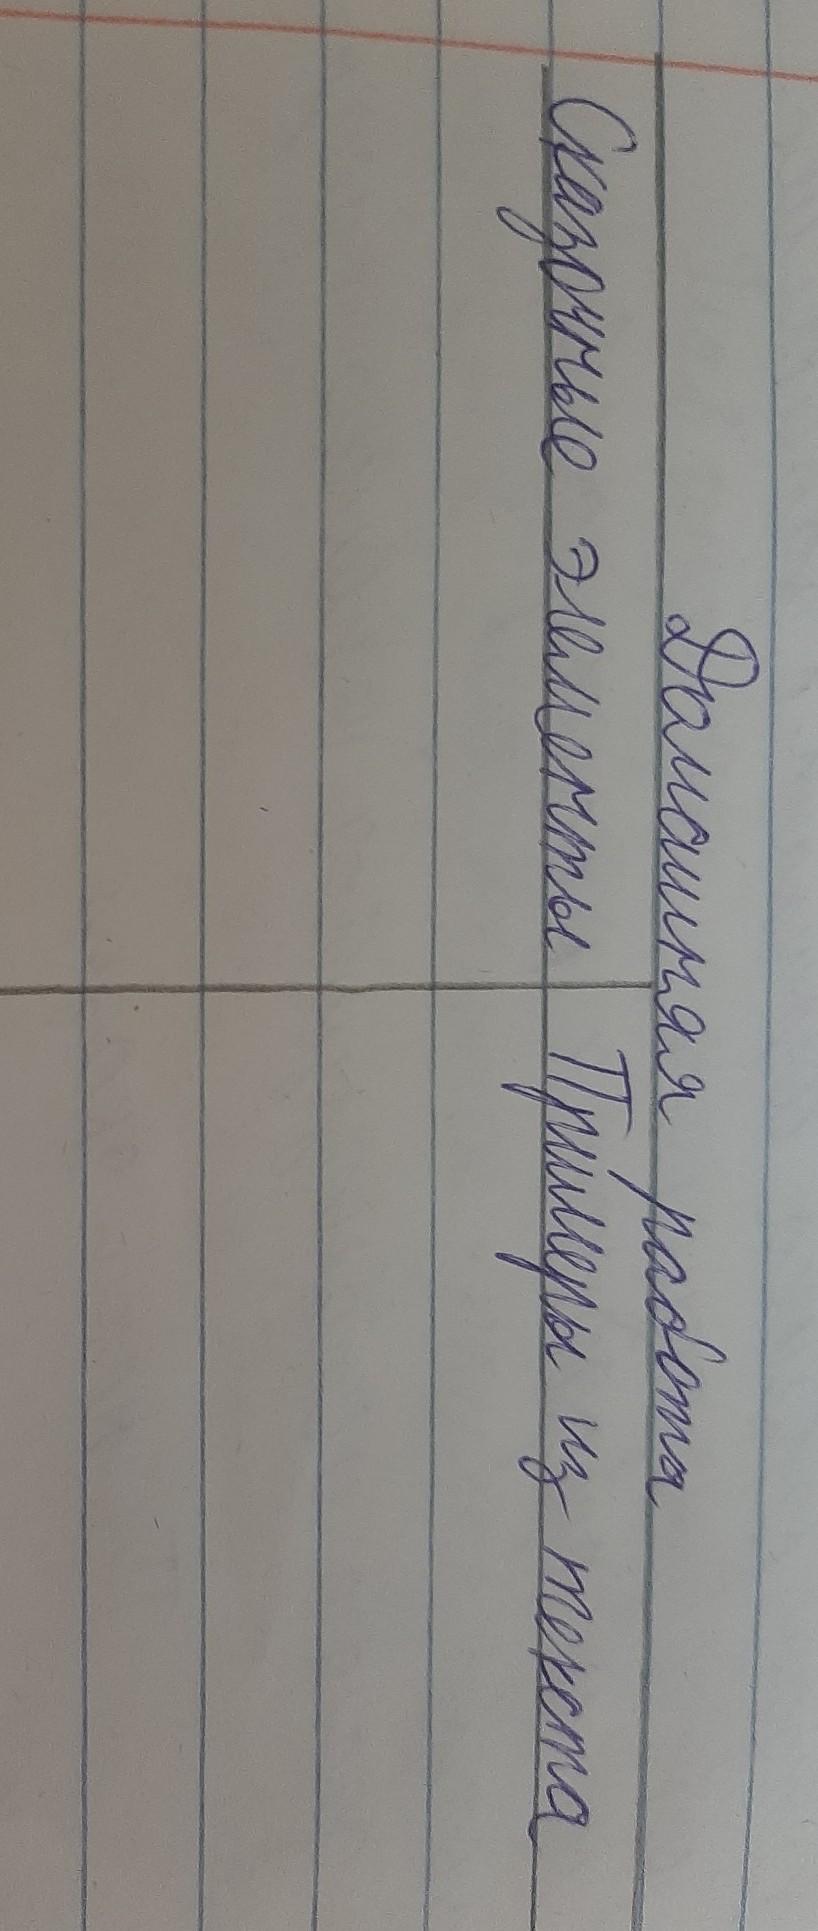 Домашняя работа
Сказочные элементы Примеры из текста